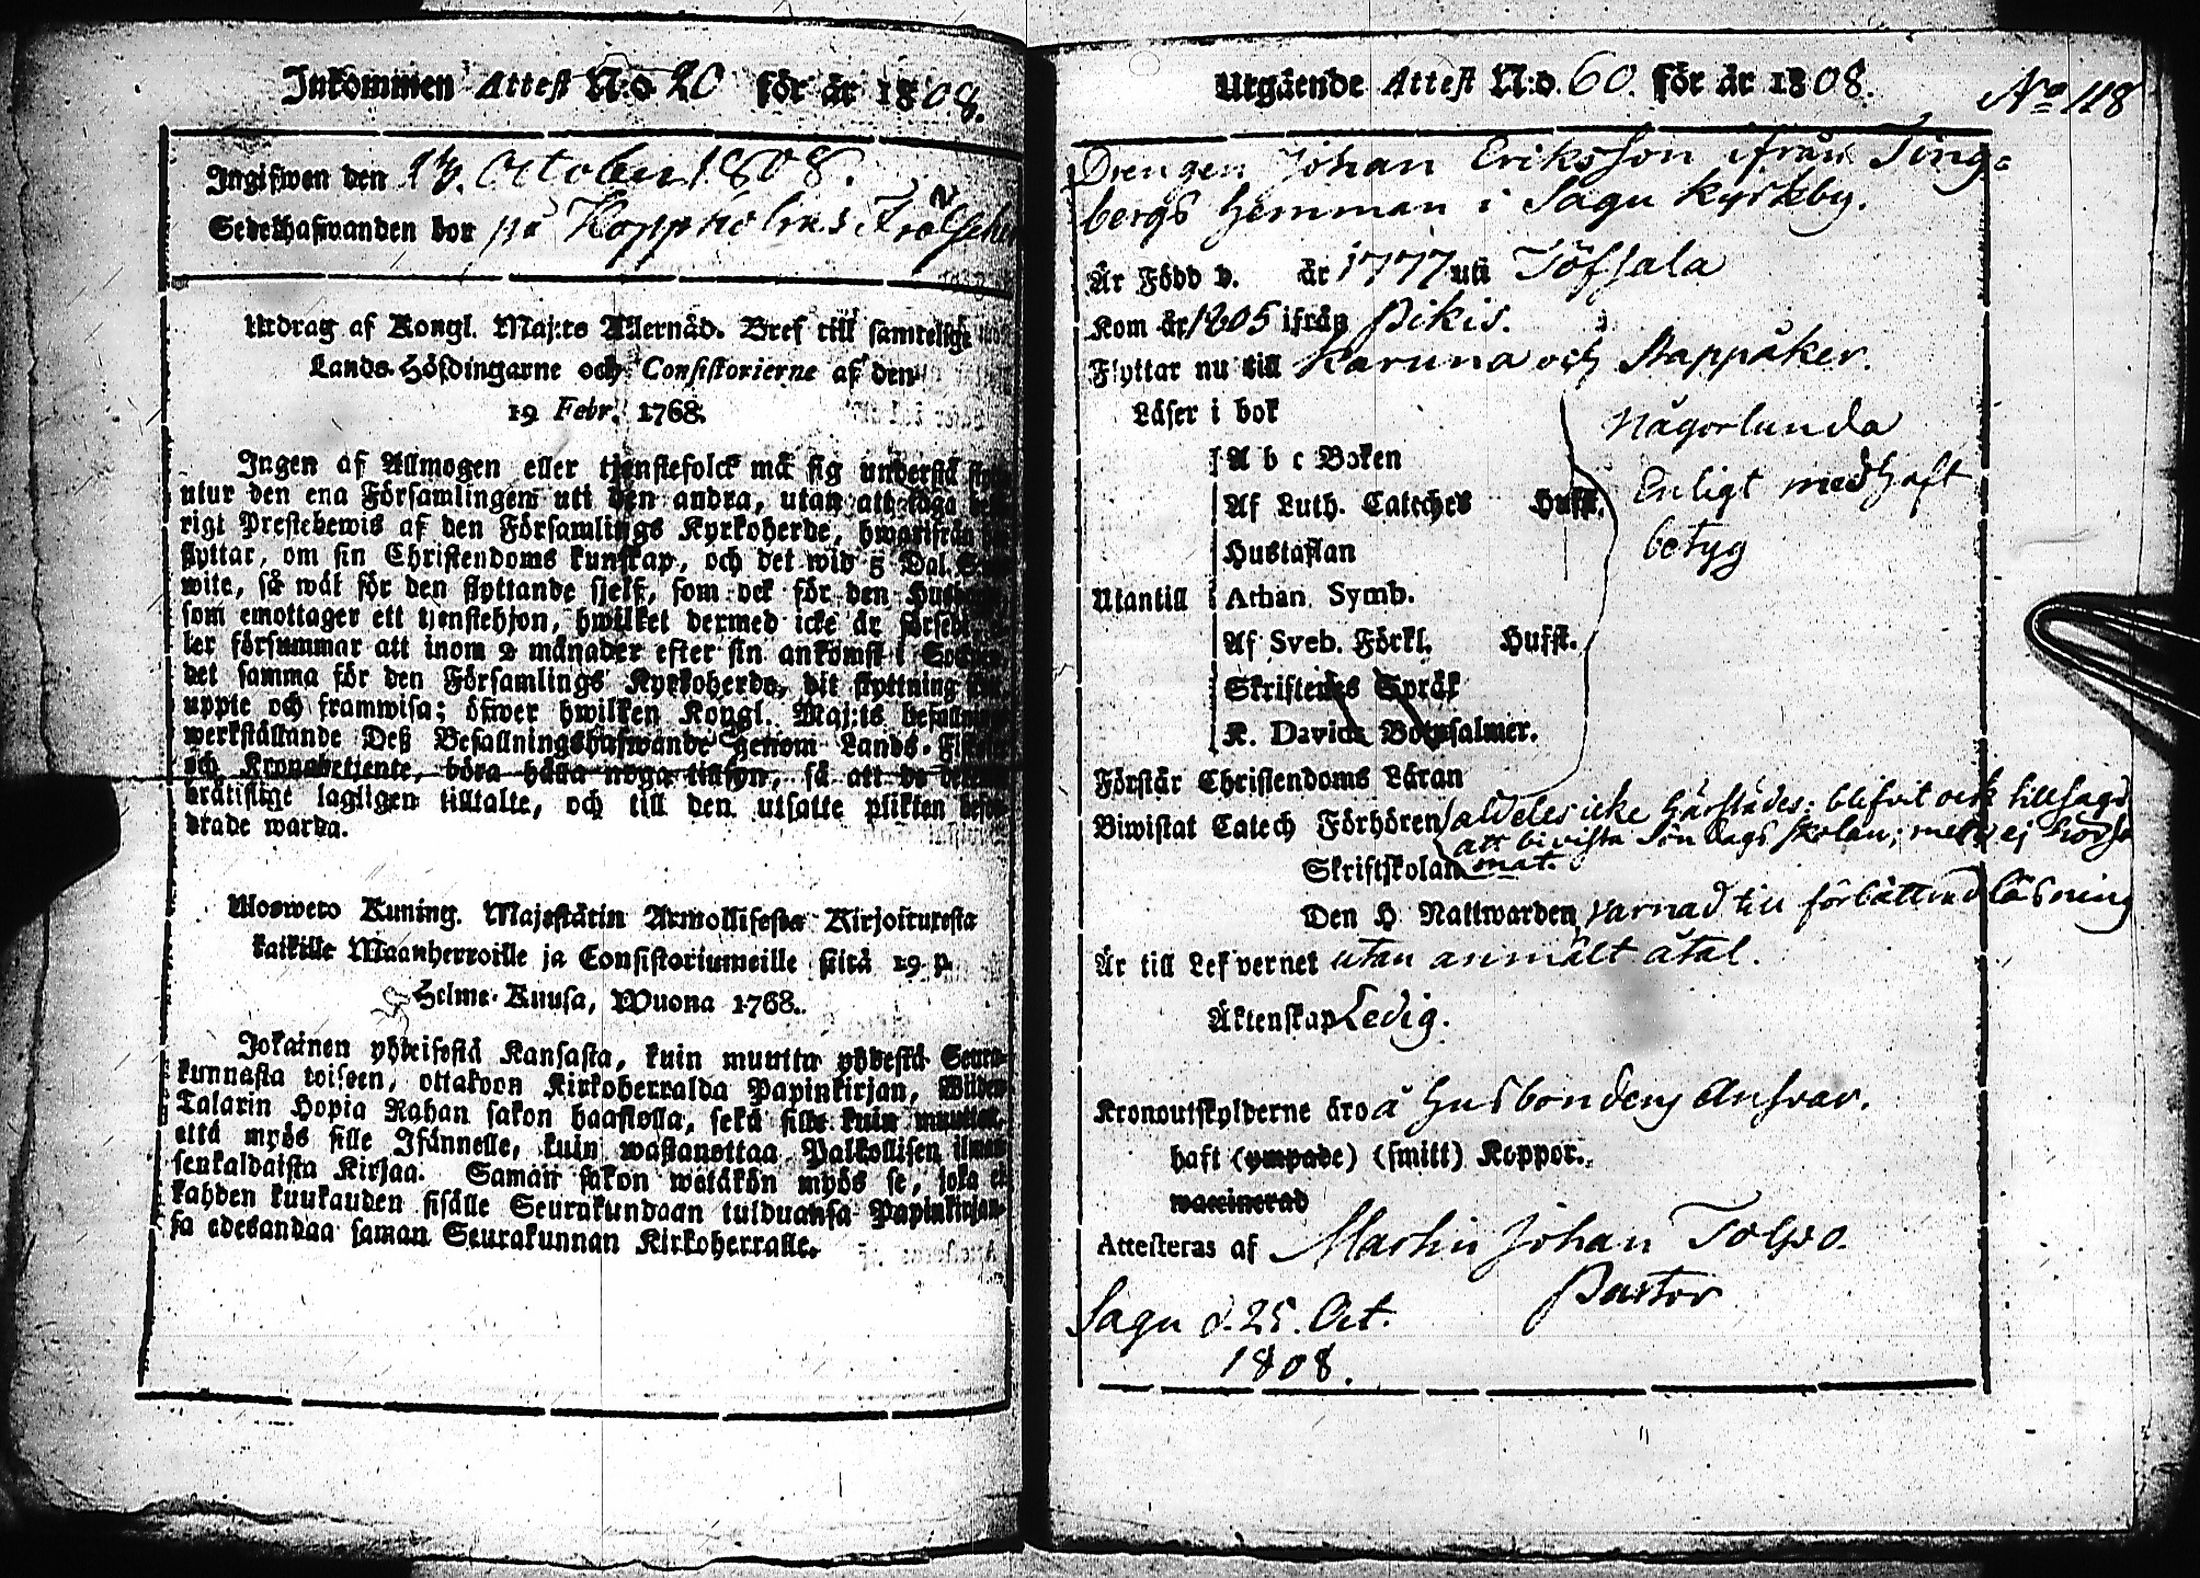 Inkommen Attest N:o 20 för år 1808.
Ingifwen den October 1808.
Sedelhafwanden bor på Koppholms
Utdrag af Kongl. Maj:ts Allernåd. Bref till samtelige
Lands-Höfdingarne och Consistorierne af den
19 Febr. 1768.
Ingen af Allmogen eller tjenstefolck må sig understå
utur den ena Församlingen uti den andra, utan att taga
rigt Prestebewis af den Församlings Kyrkoherde, hwarifrån
flyttar, om sin Christendoms kunskap, och det wid 5 Dal.
wite, så wäl för den flyttande sjelf, som ock för den
som emottager ett tjenstehjon, hwilket dermed icke är
ler försummar att inom 2 månader efter sin ankomst i
det samma för den Församlings Kyrkoherde, dit flyttning
uppte och framwisa; öfwer hwilken Kongl. Maj:ts befallning
werkställande Deß Befallningshafwande genom Lands-
och Kronobetjente, böra hålla noga tillsyn, så att de
brätslige lagligen tilltalte, och till den utsatte plikten
drade warda.
Ulosweto Kuning. Majestätin Armollisesta Kirjoituxesta
kaikille Maanherroille ja Consistoriumeille siitä 19 p.
Helme-Kuusa, Wuona 1768.
Jokainen yhteisestä Kansasta, kuin muutta yhdestä Seura-
kunnasta toiseen, ottakoon Kirkoherralda Papinkirjan, Wiiden
Talarin Hopia Rahan sakon haastolla, sekä sille kuin muuttaa,
että myös sille Isännelle, kuin wastanottaa Palkollisen ilman
senkaldaista Kirjaa. Saman sakon wetäkön myös se, joka ei
kahden kuukauden sisälle Seurakundaan tulduansa Papinkirjan-
sa edesandaa saman Seurakunnan Kirkoherralle.
Utgående Attest N:o. 60. för år 1808.
No 118
Drengen Johan Eriksson ifrån Ting-
bergs Hemman i Sagu Kyrkeby.
Är Född d. år 1777 uti Töfsala
Kom år 1805 ifrån Pikis.
Flyttar nu till Karuna och Stappåker.
Läser i bok Någorlunda
A b c Boken
Af Luth. Cateches Hufst. Enligt medhaft
Hustaflan betyg
Utantill Athan. Symb.
Af Sveb. Förkl. Hufst.
Skriftenes Språk
K. Davids Botpsalmer.
Förstår Christendoms Läran
Biwistat Catech Förhören aldeles icke härstädes: blifvit ock tillsagd
att bivista Söndags skolan; men ej
Skriftskolan mat.
Den H. Nattwarden varnad till förbättrad läsning
Är till Lefvernet utan anmält åtal.
Äktenskap Ledig.
Kronoutskylderne äro å Husbondens Ansvar.
haft (ympade) (smitt) Koppor.
waccinerad
Attesteras af Martin Johan Tolpo.
Pastor
Sagu d. 25. Oct.
1808.